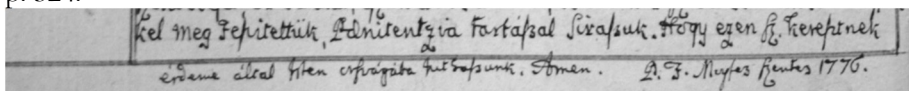 kel meg Tepitettük, Pdnitentzia tartáßal Siraßuk. Hogy ezen ß. kereßtnek
érdeme által Isten orßágába juthaßunk. Amen. P. F. Mußes ßentes 1776.